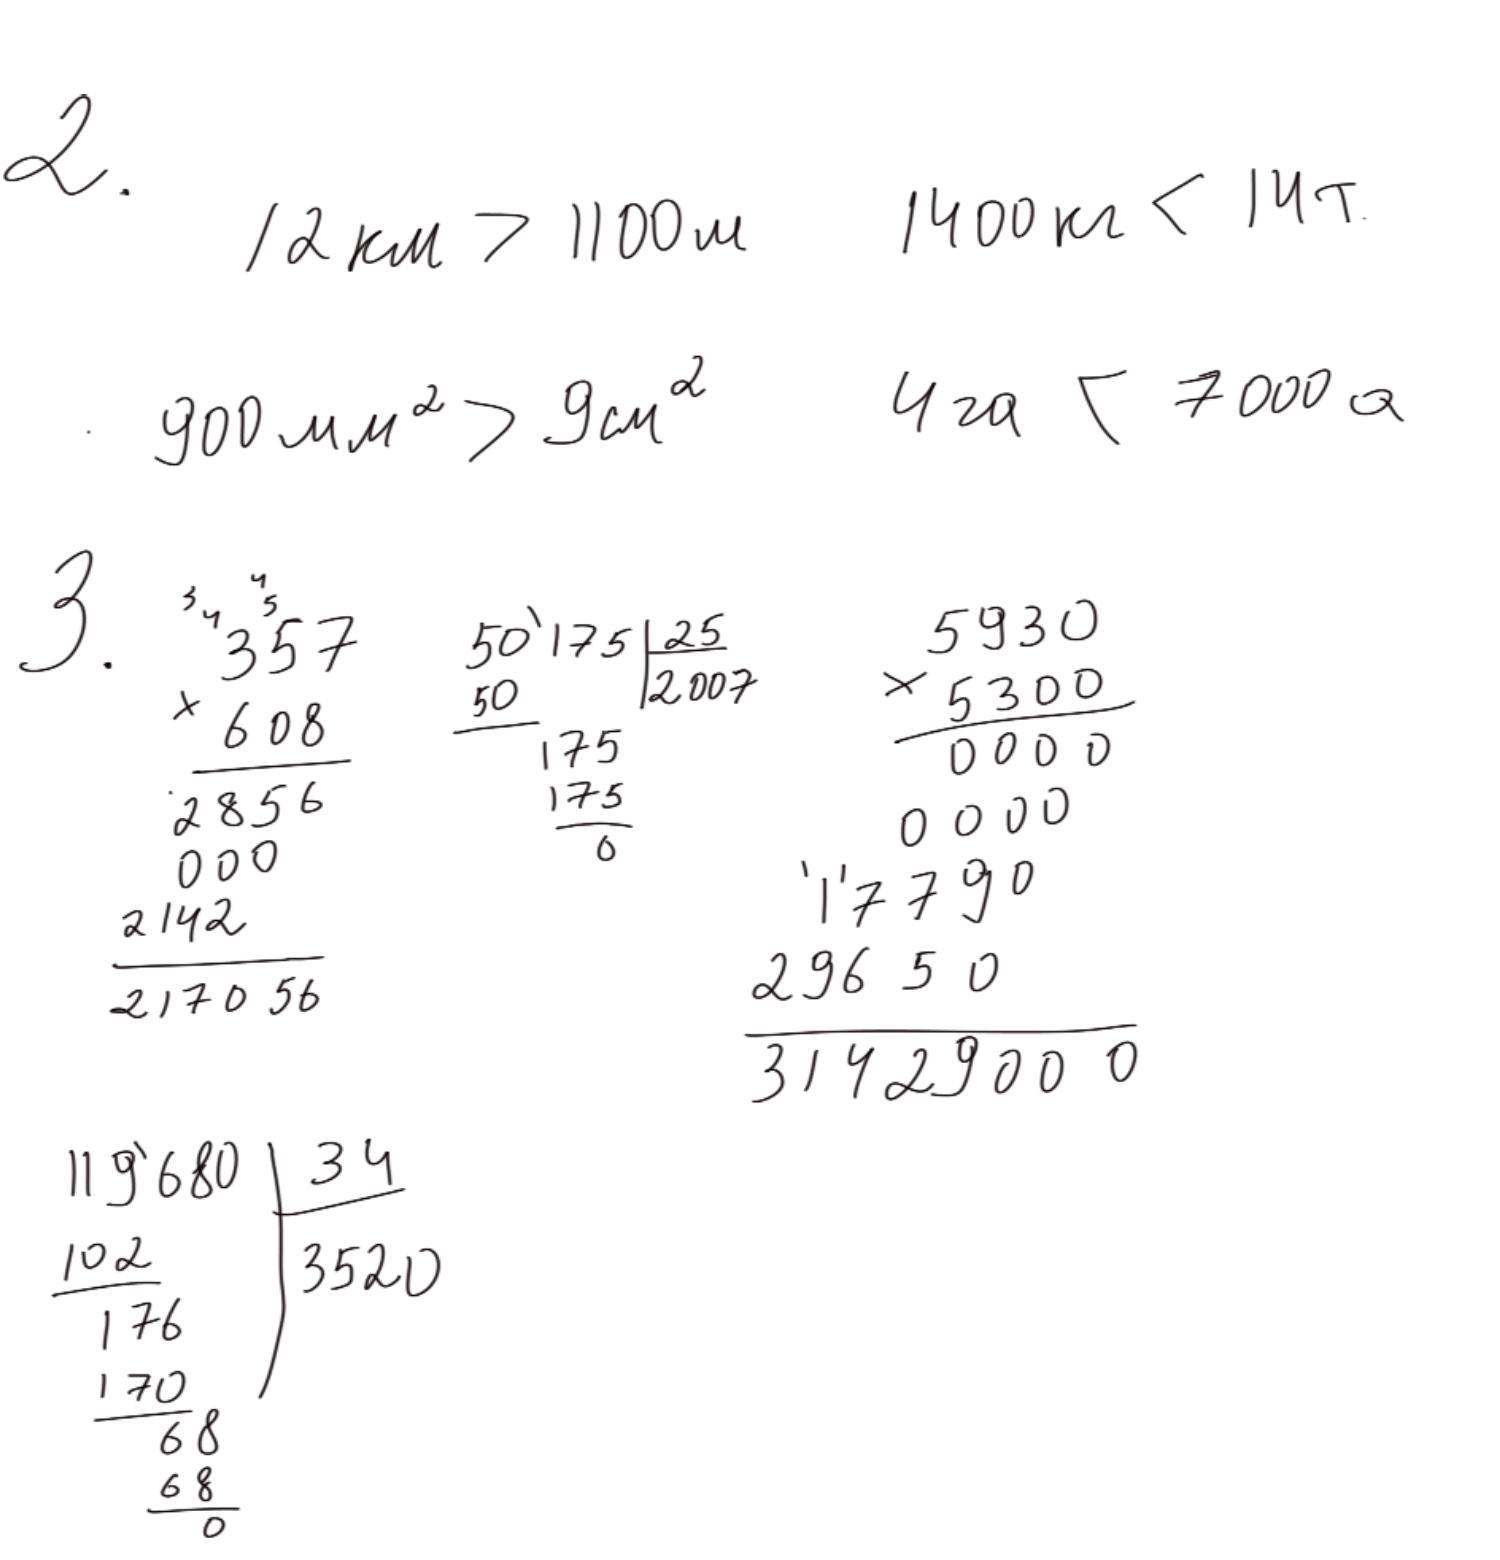 2.
12 км > 1100 м 1400 кг < 14 т.
900 мм² > 9 см² 4 га < 7000 а
3.
3 4 4 5
357
× 608
2856
000
2142
217056
50'175 | 25
50 2007
175
175
0
5930
× 5300
0000
0000
'1'7790
29650
31429000
119'680 | 34
102 3520
176
170
68
68
0